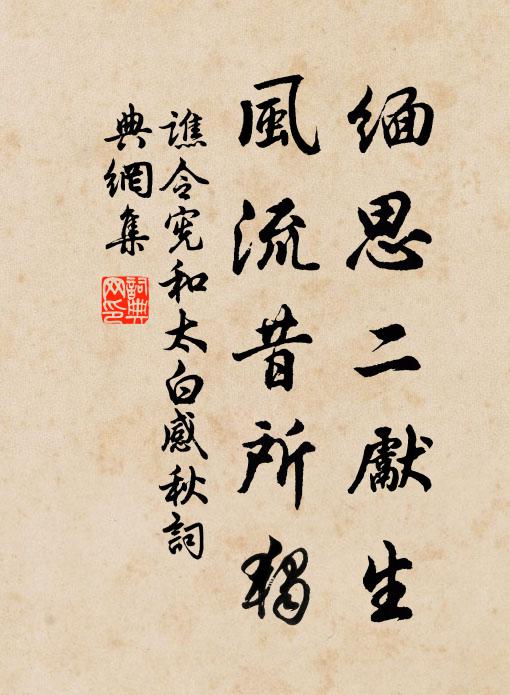 緬思二獻生
風流昔所獨
譙令憲和太白感秋詞
典網集
詞典網印